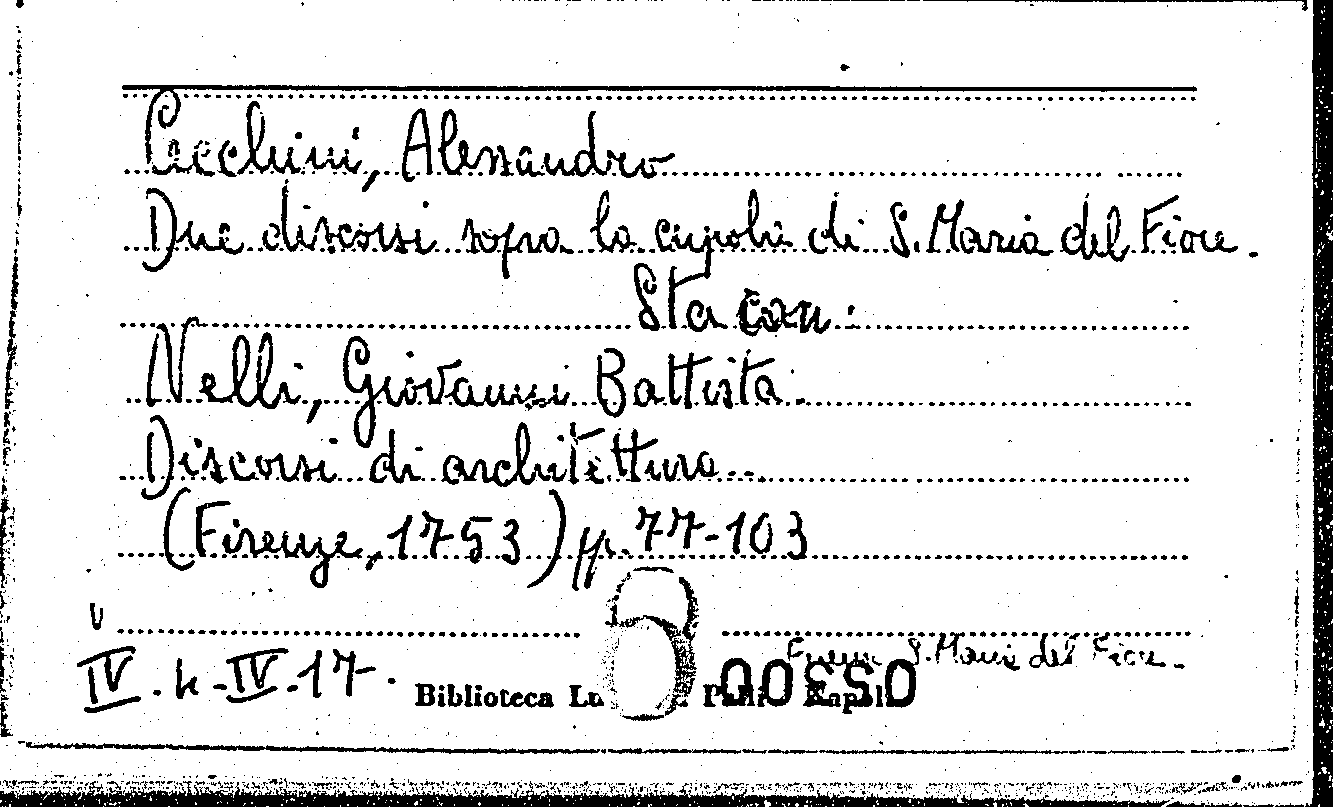 Cecchini, Alessandro
Due discorsi sopra la cupola di S. Maria del Fiore.
Sta con:
Nelli, Giovanni Battista.
Discorsi di architettura...
(Firenze, 1753) pp. 77-103
V
Firenze S. Maria del Fiore.
IV. h - IV. 17.
Biblioteca
00530